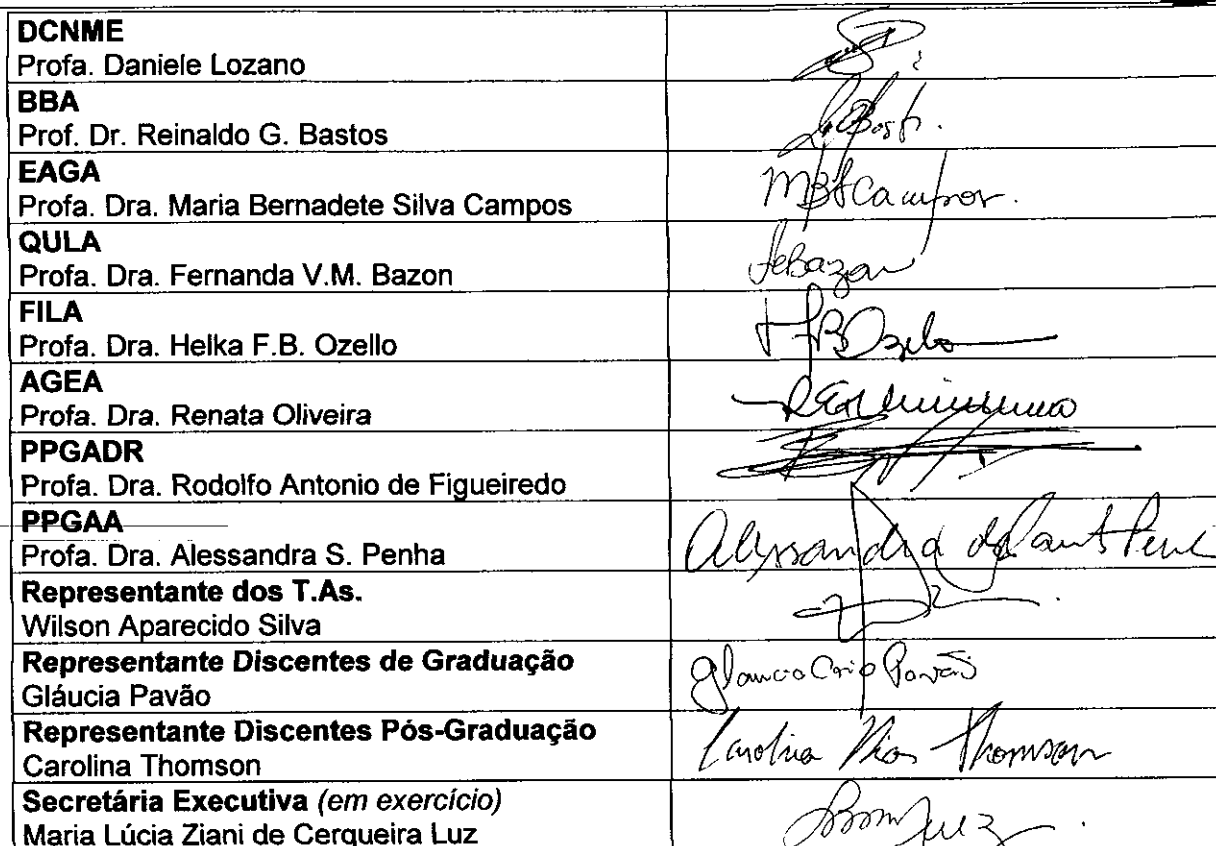 DCNME
Profa. Daniele Lozano
BBA
Prof. Dr. Reinaldo G. Bastos
EAGA
Profa. Dra. Maria Bernadete Silva Campos
MBSCampos.
QULA
Profa. Dra. Fernanda V.M. Bazon
FeBazon
FILA
Profa. Dra. Helka F.B. Ozello
HFBOzelo
AGEA
Profa. Dra. Renata Oliveira
PPGADR
Profa. Dra. Rodolfo Antonio de Figueiredo
PPGAA
Profa. Dra. Alessandra S. Penha
Alessandra
Representante dos T.As.
Wilson Aparecido Silva
Representante Discentes de Graduação
Gláucia Pavão
Pavão
Representante Discentes Pós-Graduação
Carolina Thomson
Carolina Rios Thomson
Secretária Executiva (em exercício)
Maria Lúcia Ziani de Cerqueira Luz